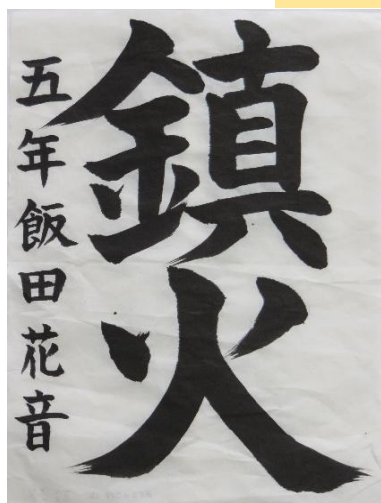 鎮火
五年飯田花音